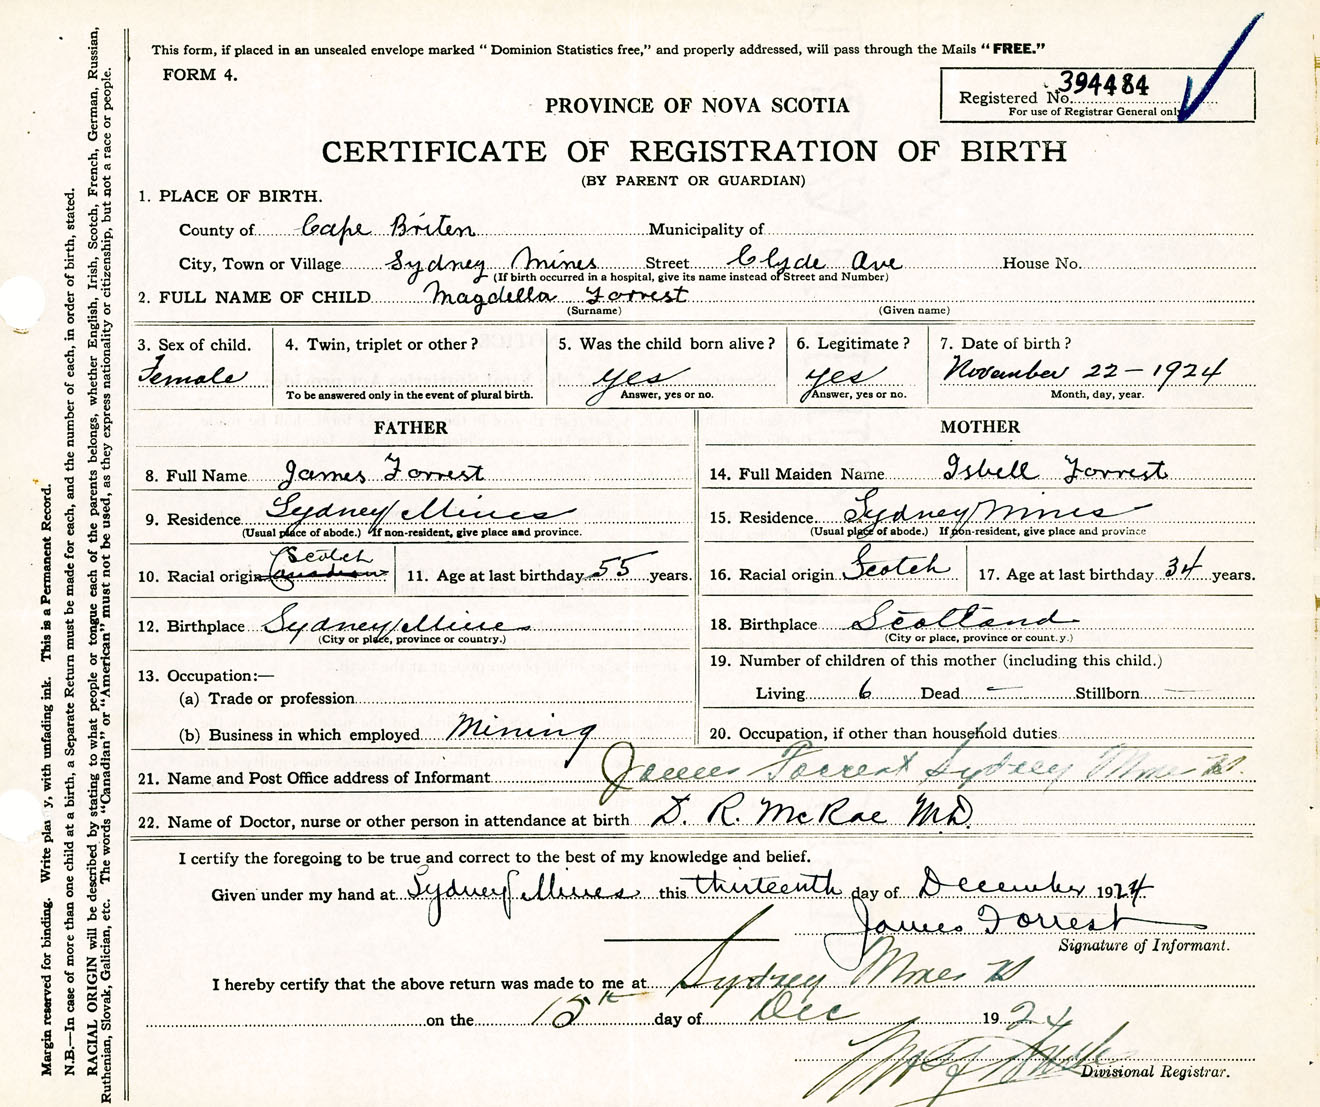 This form, if placed in an unsealed envelope marked “ Dominion Statistics free,” and properly addressed, will pass through the Mails “ FREE.”
FORM 4.
394484
Registered No.
For use of Registrar General only
PROVINCE OF NOVA SCOTIA
CERTIFICATE OF REGISTRATION OF BIRTH
(BY PARENT OR GUARDIAN)
1. PLACE OF BIRTH.
County of Cape Briten Municipality of
City, Town or Village Sydney Mines Street Clyde Ave House No.
(If birth occurred in a hospital, give its name instead of Street and Number)
2. FULL NAME OF CHILD Magdella Forrest
(Surname) (Given name)
3. Sex of child. Female
4. Twin, triplet or other ?
To be answered only in the event of plural birth.
5. Was the child born alive ? yes
Answer, yes or no.
6. Legitimate ? yes
Answer, yes or no.
7. Date of birth ? November 22 – 1924
Month, day, year.
FATHER
8. Full Name James Forrest
9. Residence Sydney Mines
(Usual place of abode.) If non-resident, give place and province.
10. Racial origin Canadian Scotch
11. Age at last birthday 55 years.
12. Birthplace Sydney Mines
(City or place, province or country.)
13. Occupation:—
(a) Trade or profession
(b) Business in which employed Mining
MOTHER
14. Full Maiden Name Isbell Forrest
15. Residence Sydney Mines
(Usual place of abode.) If non-resident, give place and province
16. Racial origin Scotch
17. Age at last birthday 34 years.
18. Birthplace Scotland
(City or place, province or count.y.)
19. Number of children of this mother (including this child.)
Living 6 Dead — Stillborn —
20. Occupation, if other than household duties
21. Name and Post Office address of Informant James Forrest Sydney Mines NS.
22. Name of Doctor, nurse or other person in attendance at birth D. R. McRae M.D.
I certify the foregoing to be true and correct to the best of my knowledge and belief.
Given under my hand at Sydney Mines this thirteenth day of December 1924
James Forrest
Signature of Informant.
I hereby certify that the above return was made to me at Sydney Mines NS
on the 15th day of Dec 1924
Divisional Registrar.
Margin reserved for binding. Write plai y, with unfading ink. This is a Permanent Record.
N.B.—In case of more than one child at a birth, a Separate Return must be made for each, and the number of each, in order of birth, stated.
RACIAL ORIGIN will be described by stating to what people or tongue each of the parents belongs, whether English, Irish, Scotch, French, German, Russian,
Ruthenian, Slovak, Galician, etc. The words “Canadian” or “American” must not be used, as they express nationality or citizenship, but not a race or people.